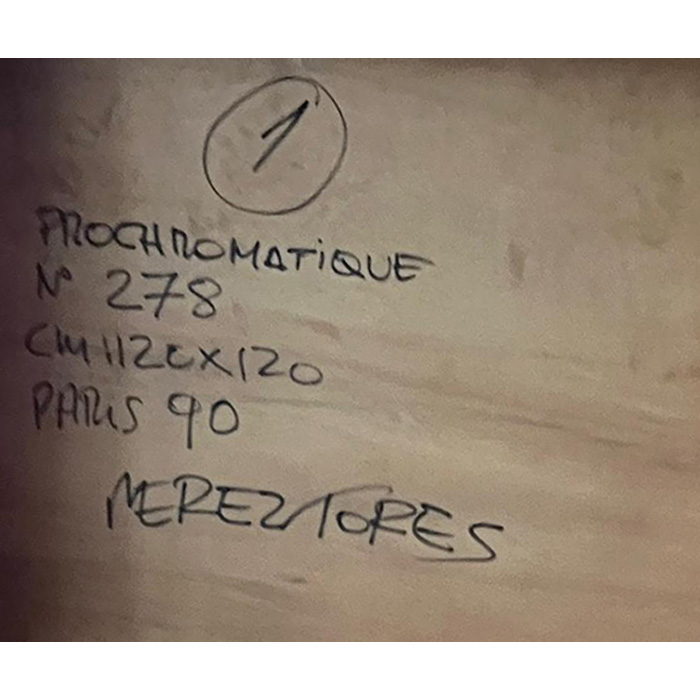 1
PROCHROMATIQUE
N° 278
CM 120X120
PARIS 90
PEREZ FLORES